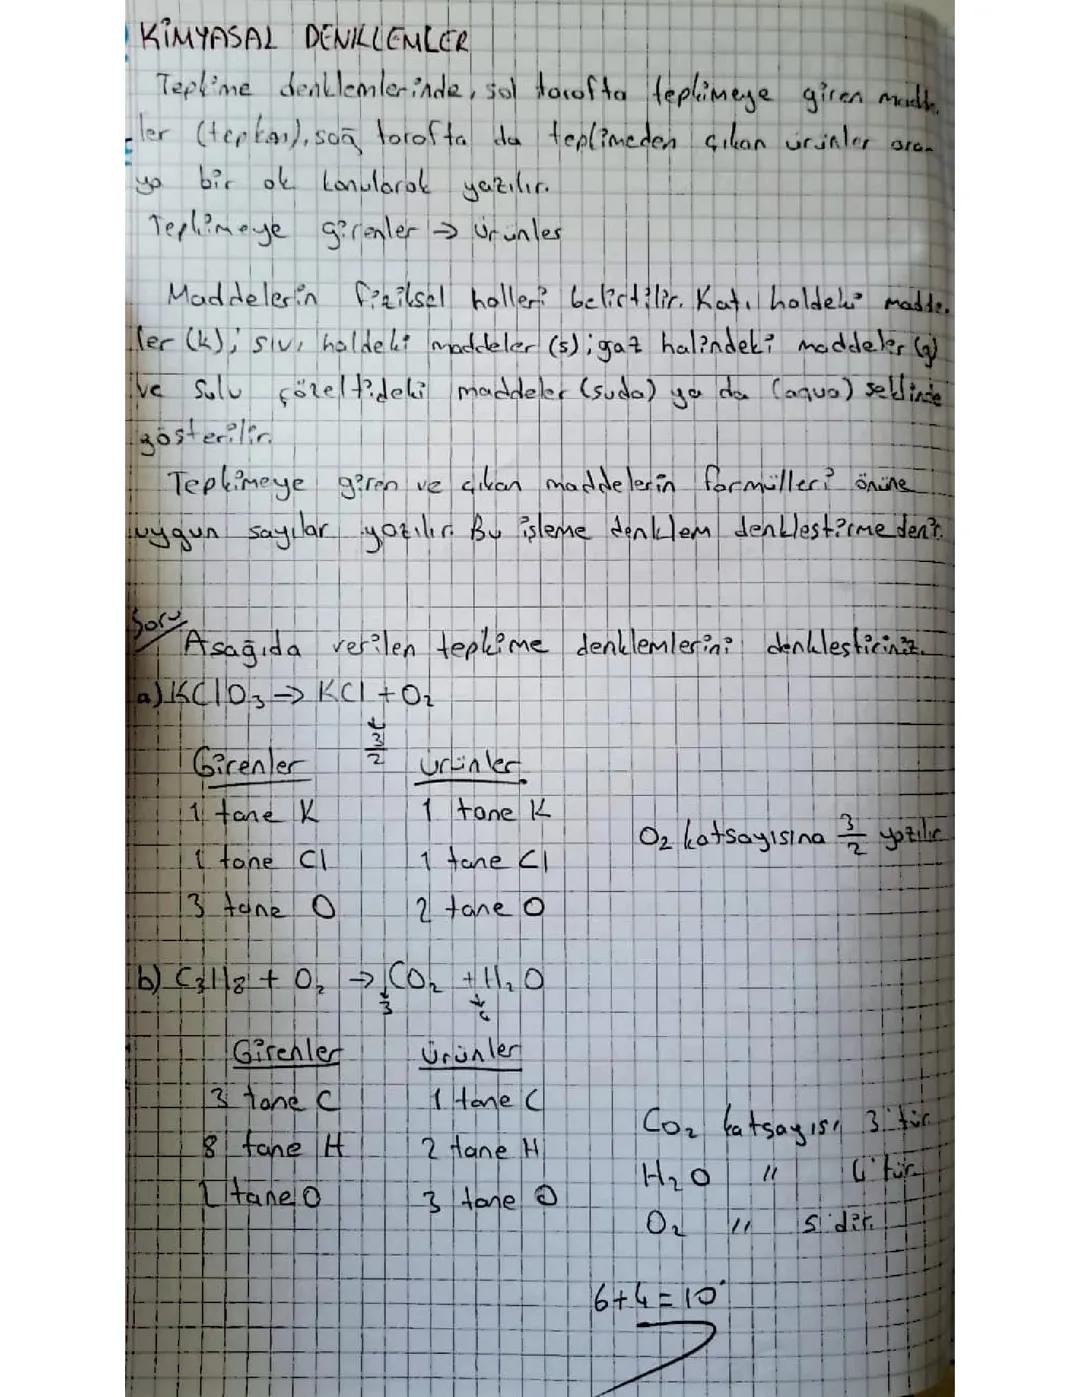 KİMYASAL DENKLEMLER
Tepkime denklemlerinde, sol tarafta tepkimeye giren madde
ler (tepkan), sağ tarafta da tepkimeden çıkan ürünler ara
ya bir ok konularak yazılır.
Tepkimeye girenler → ürünler
Maddelerin fiziksel halleri belirtilir. Katı haldeki madde
ler (k); sıvı haldeki maddeler (s); gaz halindeki maddeler (g)
ve sulu çözeltideki maddeler (suda) ya da (aqua) seklinde
gösterilir.
Tepkimeye giren ve çıkan maddelerin formülleri önüne
uygun sayılar yazılır. Bu işleme denklem denklestirme denir.
Soru
Asağıda verilen tepkime denklemlerini denklestiriniz.
a) KClO₃ → KCl + O₂
3/2
Girenler ürünler
1 tane K 1 tane K
1 tane Cl 1 tane Cl
3 tane O 2 tane O
O₂ katsayısına 3/2 yazılır
b) C₃H₈ + O₂ → CO₂ + H₂O
3 4
Girenler ürünler
3 tane C 1 tane C
8 tane H 2 tane H
2 tane O 3 tane O
CO₂ katsayısı 3'tür
H₂O " 4'tür
O₂ " 5'dir.
6+4=10